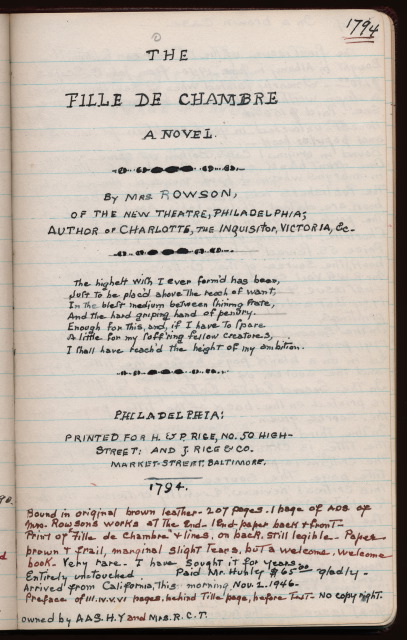 1794
THE
FILLE DE CHAMBRE
A NOVEL.
By Mrs. Rowson,
OF THE NEW THEATRE, PHILADELPHIA;
AUTHOR OF CHARLOTTE, THE INQUISITOR, VICTORIA, &c.
The higheſt wiſh I ever form'd has been,
Juſt to be plac'd above the reach of want,
In the bleſt medium between ſhining ſtate,
And the hard griping hand of penury.
Enough for this, and, if I have to ſpare
A little for my ſuff'ring fellow creatures,
I ſhall have reach'd the height of my ambition.
PHILADELPHIA:
PRINTED FOR H. & P. RICE, NO. 50 HIGH-
STREET; AND J. RICE & CO.
MARKET-STREET, BALTIMORE.
1794.
Bound in original brown leather - 207 pages. 1 page of ADS of
Mrs. Rowson's works at the end - 1 End-paper back & front -
Print of "Fille de Chambre" & lines, on back, still legible - Paper
brown & frail, marginal slight tears, but a welcome, welcome
book - Very rare - I have sought it for years
Entirely untouched. Paid Mr. $65.00 gladly -
Arrived from California, This morning Nov. 2. 1946 -
Preface of III.IV.V.VI pages, behind Title page, before Text - No copyright.
owned by AAS. H.Y and Mrs. R.C.T.